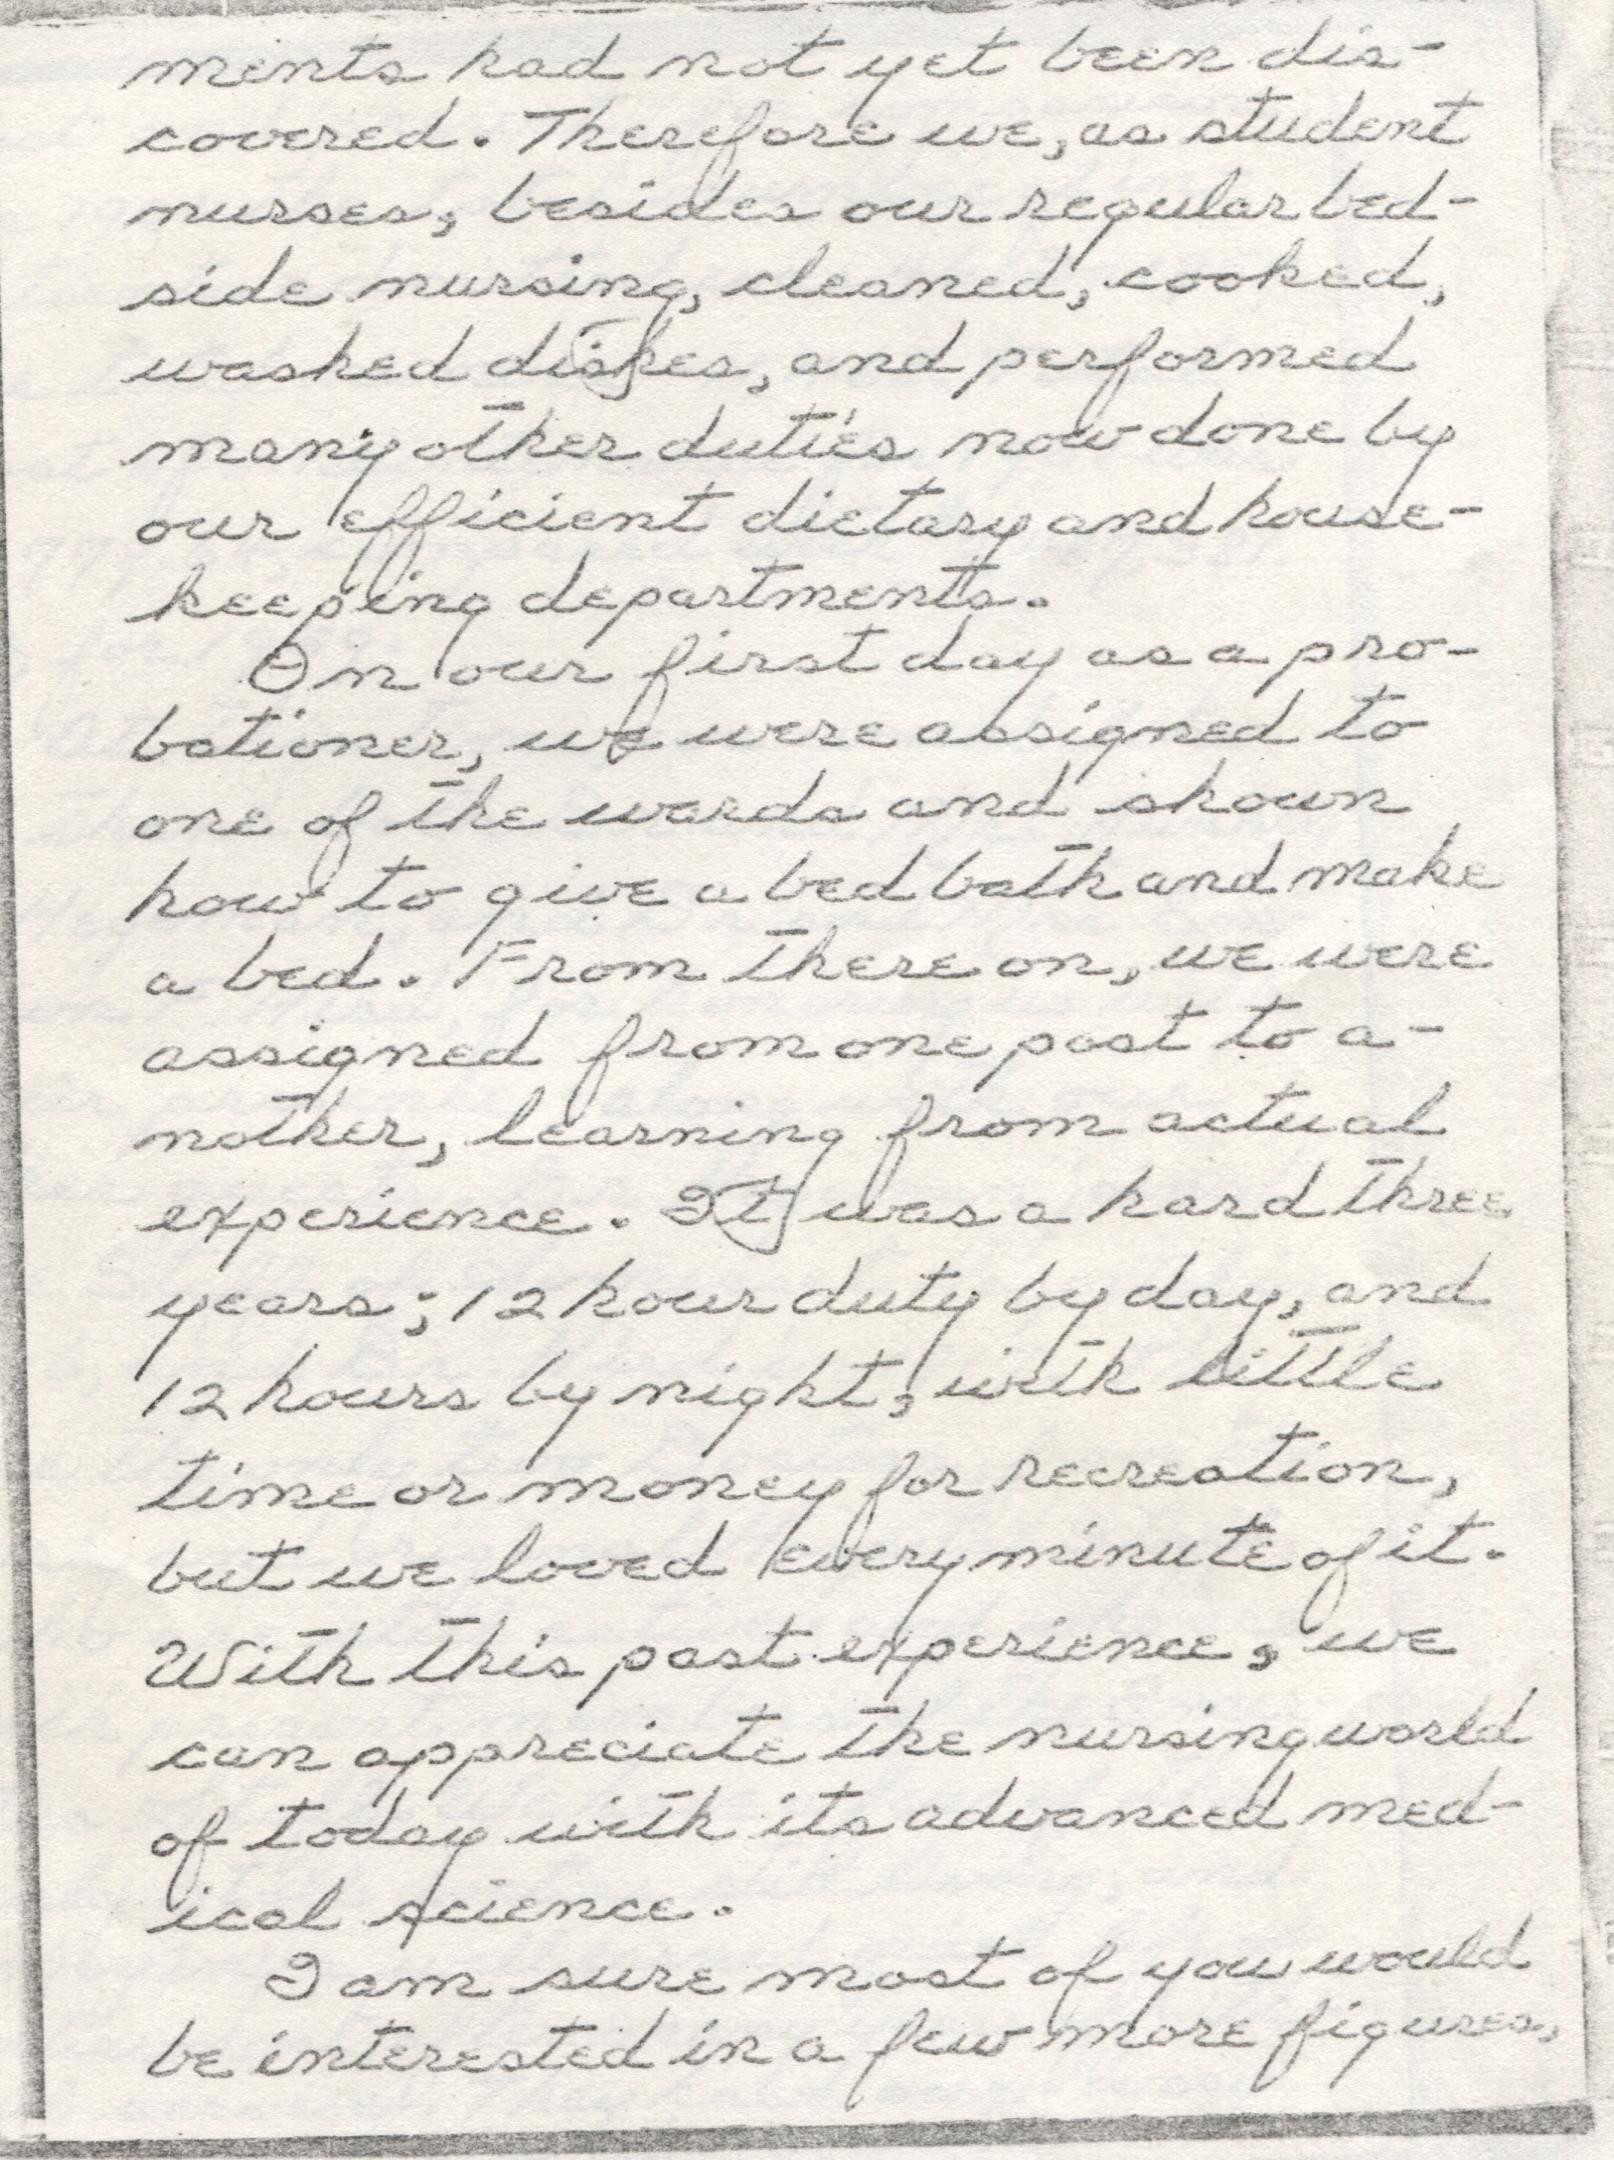 ments had not yet been dis-
covered. Therefore we, as student
nurses, besides our regular bed-
side nursing, cleaned, cooked,
washed dishes, and performed
many other duties now done by
our efficient dietary and house-
keeping departments.
On our first day as a pro-
bationer, we were assigned to
one of the wards and shown
how to give a bed bath and make
a bed. From there on, we were
assigned from one post to a-
nother, learning from actual
experience. It was a hard three
years; 12 hour duty by day, and
12 hours by night, with little
time or money for recreation,
but we loved every minute of it.
With this past experience, we
can appreciate the nursing world
of today with its advanced med-
ical science.
I am sure most of you would
be interested in a few more figures,